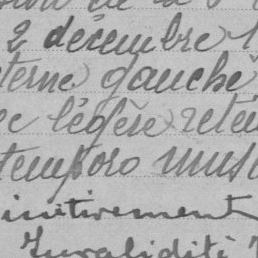 2 décembre 1
terne gauche
légère reten
temporo mus
initivement
Invalidité